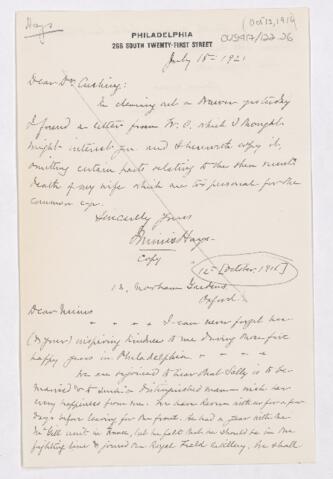 Hays
(Oct 12, 1916)
CUS417/122.26
PHILADELPHIA
266 SOUTH TWENTY-FIRST STREET
July 15 - 1921
Dear Dr. Cushing:
In clearing out a drawer yesterday
I found a letter from W. O. which I thought
might interest you and I herewith copy it,
omitting certain parts relating to the then recent
death of my wife which are too personal for the
common eye.
Sincerely yours
Minnis Hays.
Copy
12 [October, 1916]
13, Norham Gardens
Oxford
Dear Minnis
" " " " I can never forget her
(& your) inspiring kindness to me during those five
happy years in Philadelphia " " " "
We are rejoiced to hear that Sally is to be
married & to such a distinguished man - wish her
every happiness from me. We have Revere with us for a few
days before leaving for the front. He had a year with the
McGill unit in France, but he felt that he should be in the
fighting line & joined the Royal Field Artillery. We shall